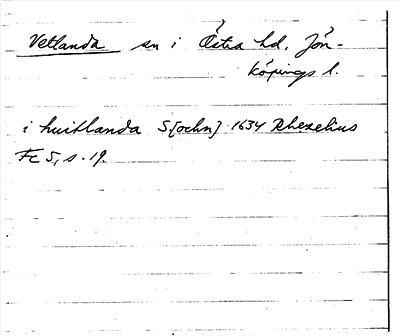 Vetlanda sn i Östra hd. Jön-
köpings l.
i huitlanda S[ochn] 1634 Rhezelius
Fc 5, s. 19.